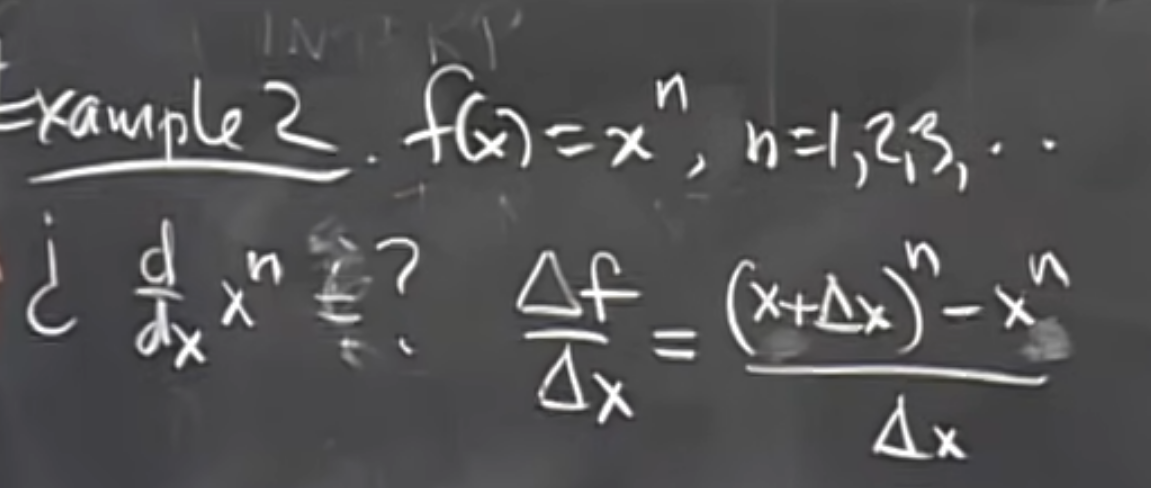 Example 2. f(x) = x^n, n=1,2,3,...
¿ d/dx x^n = ? Δf/Δx = ((x+Δx)^n - x^n)/Δx